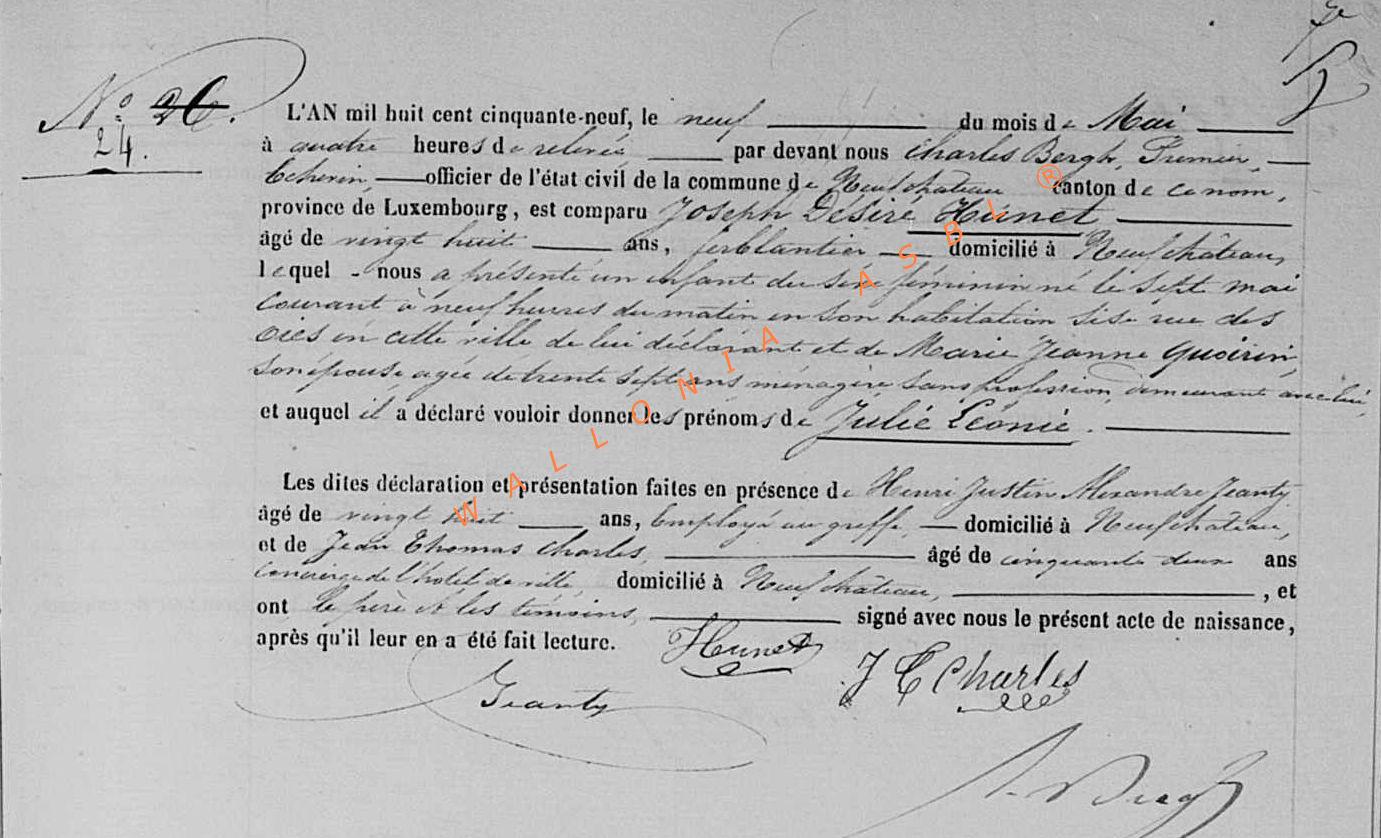 N° 26.
24.
L'AN mil huit cent cinquante-neuf, le neuf du mois de Mai
à quatre heures de relevée par devant nous Charles Bergh, Premier,
Echevin, officier de l'état civil de la commune de Neufchateau canton de ce nom,
province de Luxembourg, est comparu Joseph Désiré Hunet
âgé de vingt huit ans, ferblantier domicilié à Neufchâteau,
lequel - nous a présenté un enfant du sexe féminin né le sept mai
courant à neuf heures du matin en son habitation sise rue des
oies en cette ville de lui déclarant et de Marie Jeanne Quoirin,
son épouse agée de trente sept ans ménagère sans profession, demeurant avec lui,
et auquel il a déclaré vouloir donner les prénoms de Julie Léonie.
Les dites déclaration et présentation faites en présence de Henri Justin Alexandre Jeanty
âgé de vingt huit ans, Employé au greffe, domicilié à Neufchâteau,
et de Jean Thomas Charles, âgé de cinquante deux ans
concierge de l'hotel de ville, domicilié à Neufchâteau, , et
ont le père et les témoins, signé avec nous le présent acte de naissance,
après qu'il leur en a été fait lecture. Hunet
J T Charles
Jeanty
WALLONIA ASBL ®